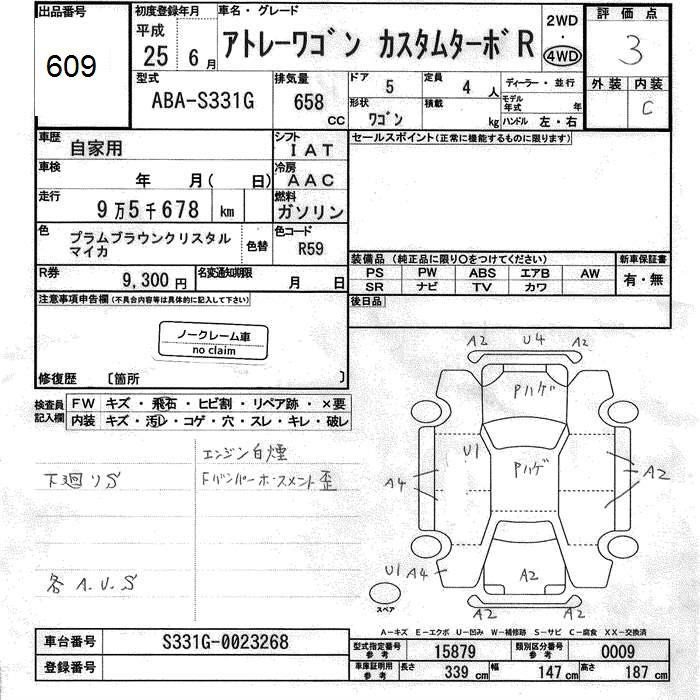 出品番号
609
初度登録年月
平成
25年 6月
車名・グレード
アトレーワゴン カスタムターボR
2WD
・
4WD
評価点
3
外装 内装
C
型式
ABA-S331G
排気量
658
CC
ドア 5
定員 4人
形状 ワゴン
積載 kg
ディーラー・並行
モデル年式 年
ハンドル 左・右
車歴
自家用
シフト
IAT
セールスポイント(正常に機能するものに限ります)
車検
年 月( 日)
冷房
AAC
走行
9万5千678 km
燃料
ガソリン
色
プラムブラウンクリスタル
マイカ
色替
色コード
R59
装備品 (純正品に限り○をつけてください)
PS PW ABS エアB AW
SR ナビ TV カワ
新車保証書
有・無
R券
9,300円
名変通知期限
月 日
後日品
注意事項申告欄(不具合内容等は具体的に記入して下さい)
ノークレーム車
no claim
修復歴 〔箇所 〕
検査員
記入欄
FW キズ・飛石・ヒビ割・リペア跡・×要
内装 キズ・汚レ・コゲ・穴・スレ・キレ・破レ
エンジン白煙
下廻りS
Fバンパーホースメント歪
各A.U.S
A2 U4 A2
Pハゲ
U1
Pハゲ
A4
A2
U1 A4
A2
A2 A2
スペア
A-キズ E-エクボ U-凹み W-補修跡 S-サビ C-腐食 XX-交換済
車台番号
S331G-0023268
登録番号
型式指定番号
参考
15879
類別区分番号
参考
0009
車庫証明用
参考
長さ 339 cm
幅 147 cm
高さ 187 cm